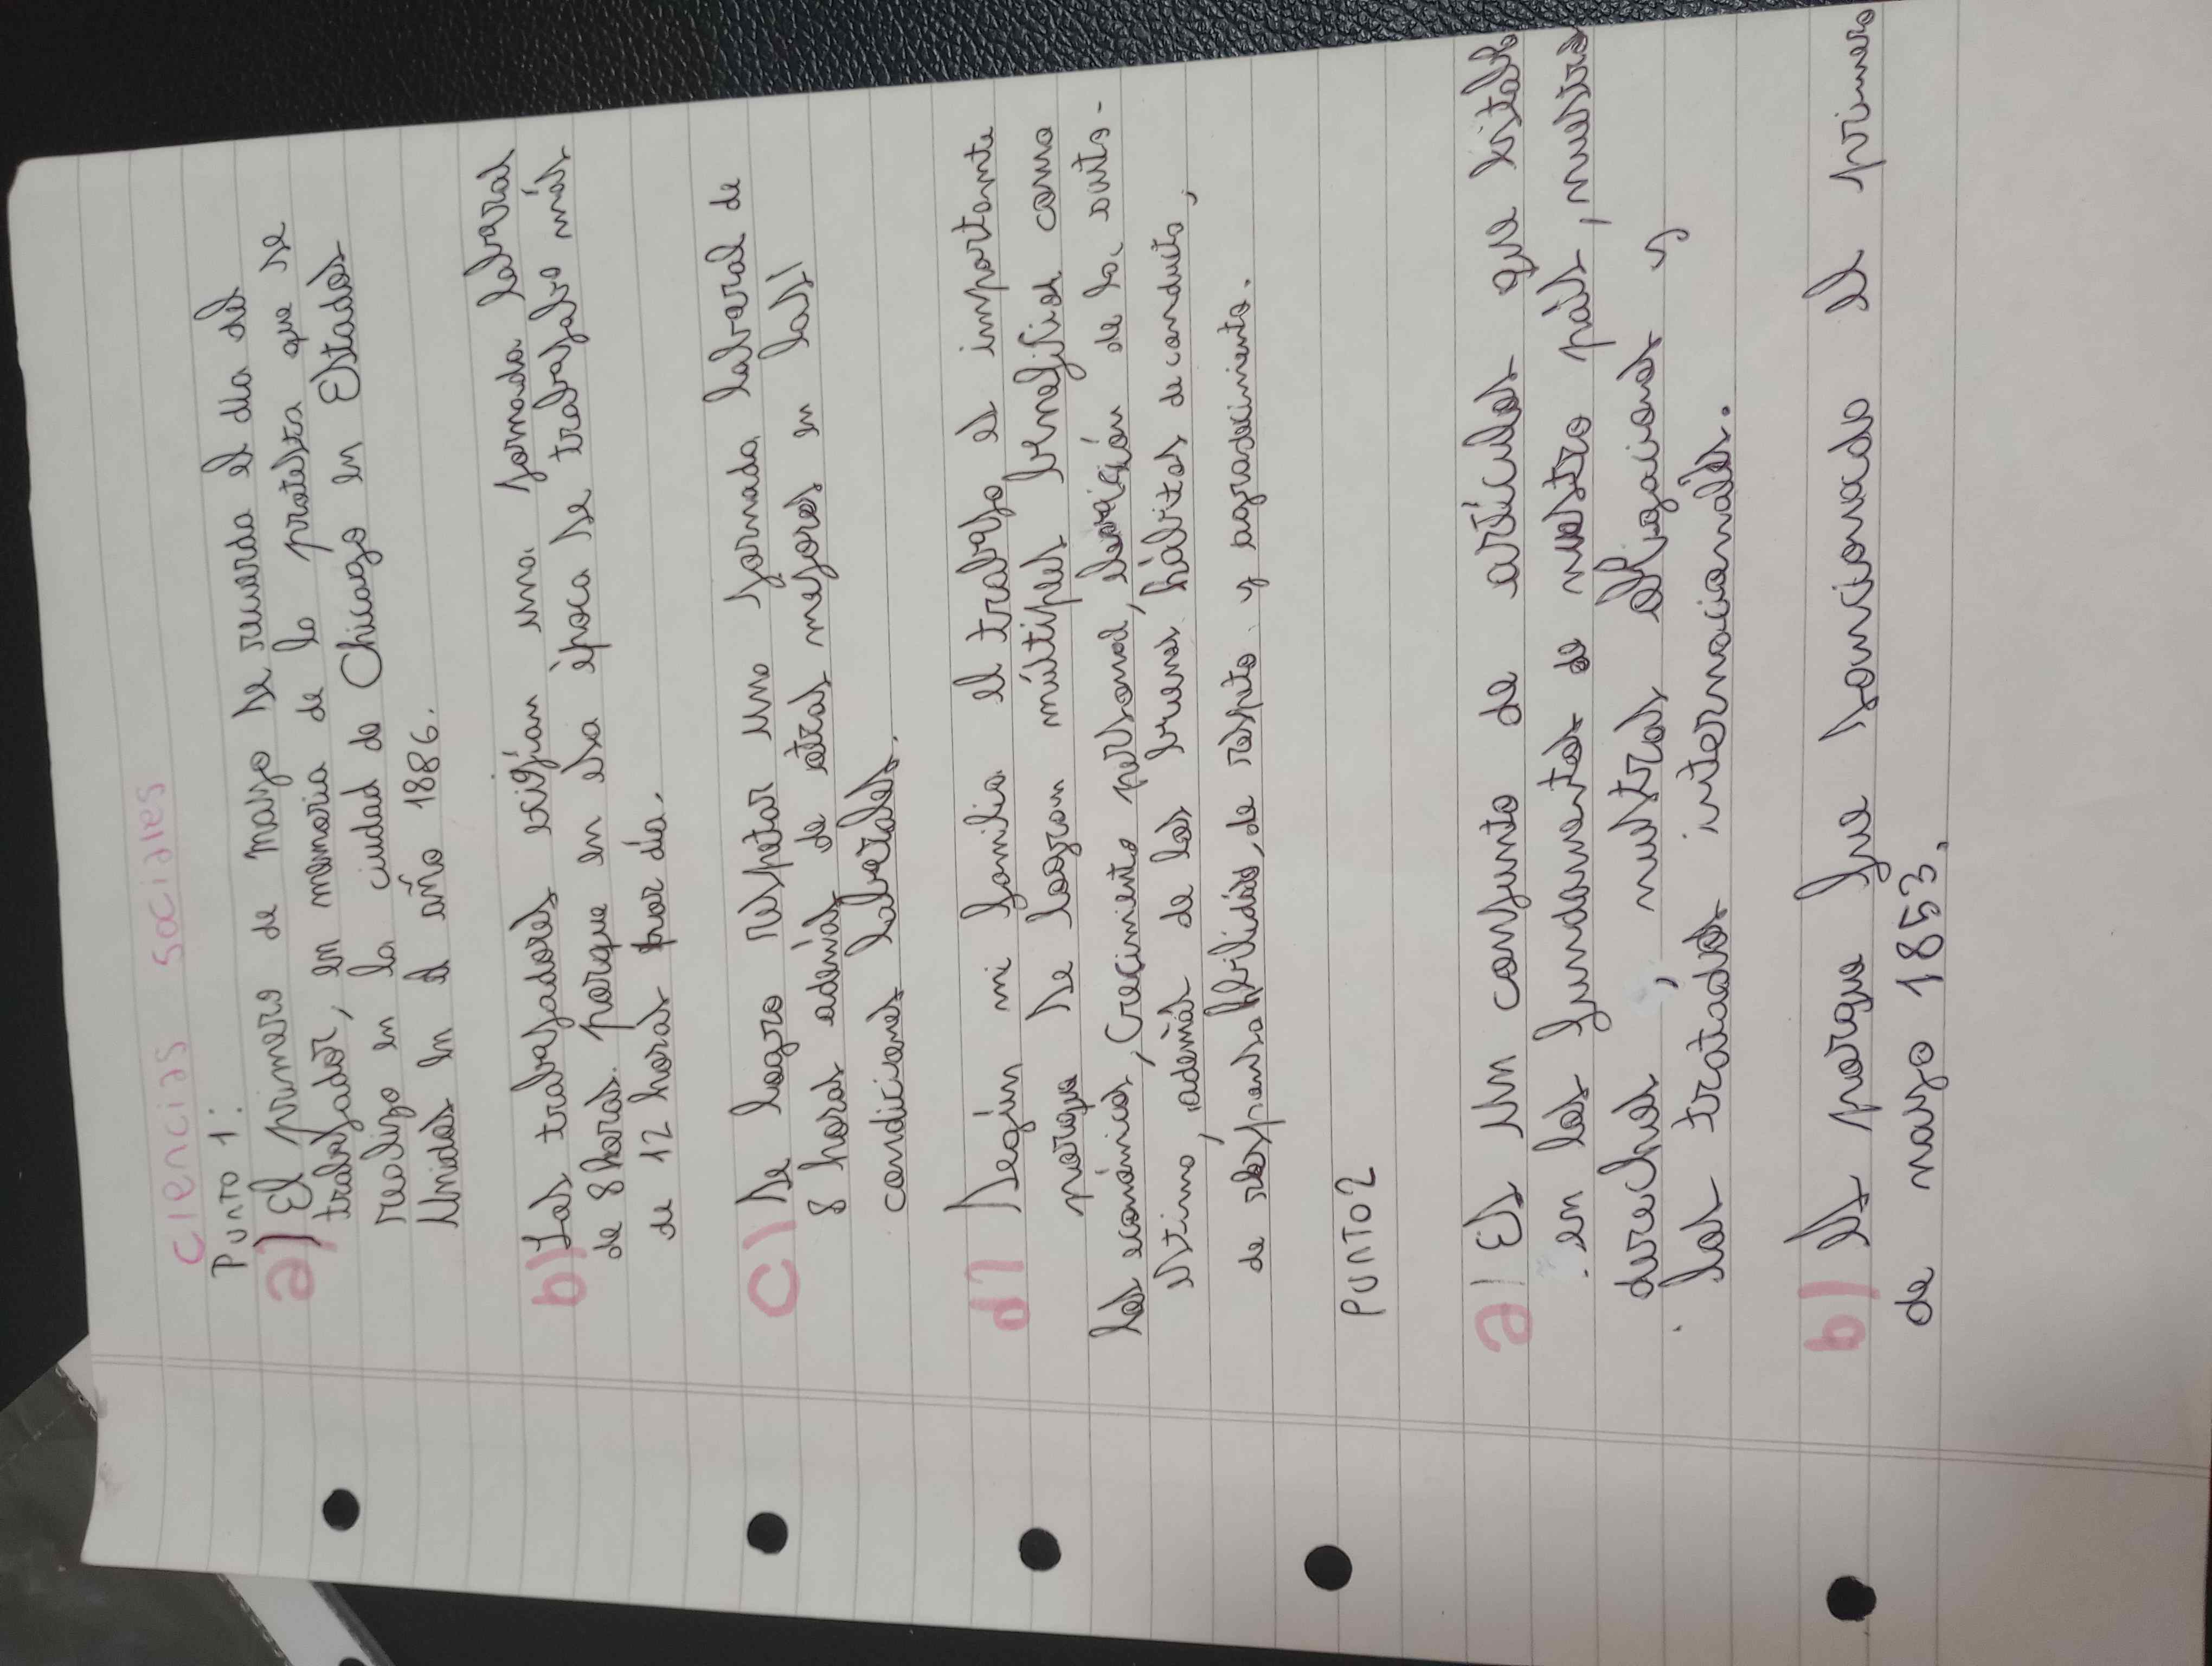 Ciencias Sociales
Punto 1:
a) El primero de mayo se recuerda el día del
trabajador, en memoria de la protesta que se
realizo en la ciudad de Chicago en Estados
Unidos en el año 1886.
b) Los trabajadores exigían una jornada laboral
de 8 horas. porque en esa época se trabajaba más
de 12 horas por día.
c) Se logro respetar una jornada laboral de
8 horas además de otras mejores en las
condiciones laborales.
d) Según mi familia el trabajo es importante
porque se logran múltiples beneficios como
los económicos, Crecimiento personal, elevación de la auto-
estima, además de los buenos hábitos de conducta,
de responsabilidad, de respeto y agradecimiento.
Punto 2
a) Es un conjunto de artículos que
en los fundamentos de nuestro país, nuestros
derechos, nuestras obligaciones y
los tratados internacionales.
b) Es porque fue sancionada el primero
de mayo 1853.